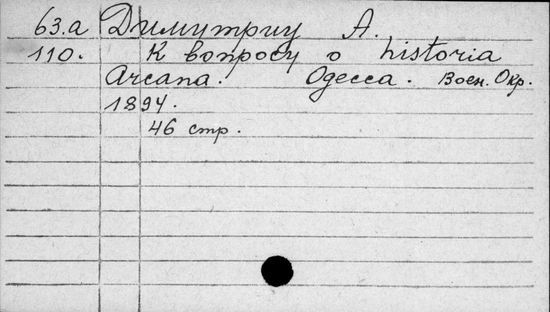 63.a Димутриу А.
110. К вопросу о historia
Arcana. Одесса. Воен. Окр.
1894.
46 стр.